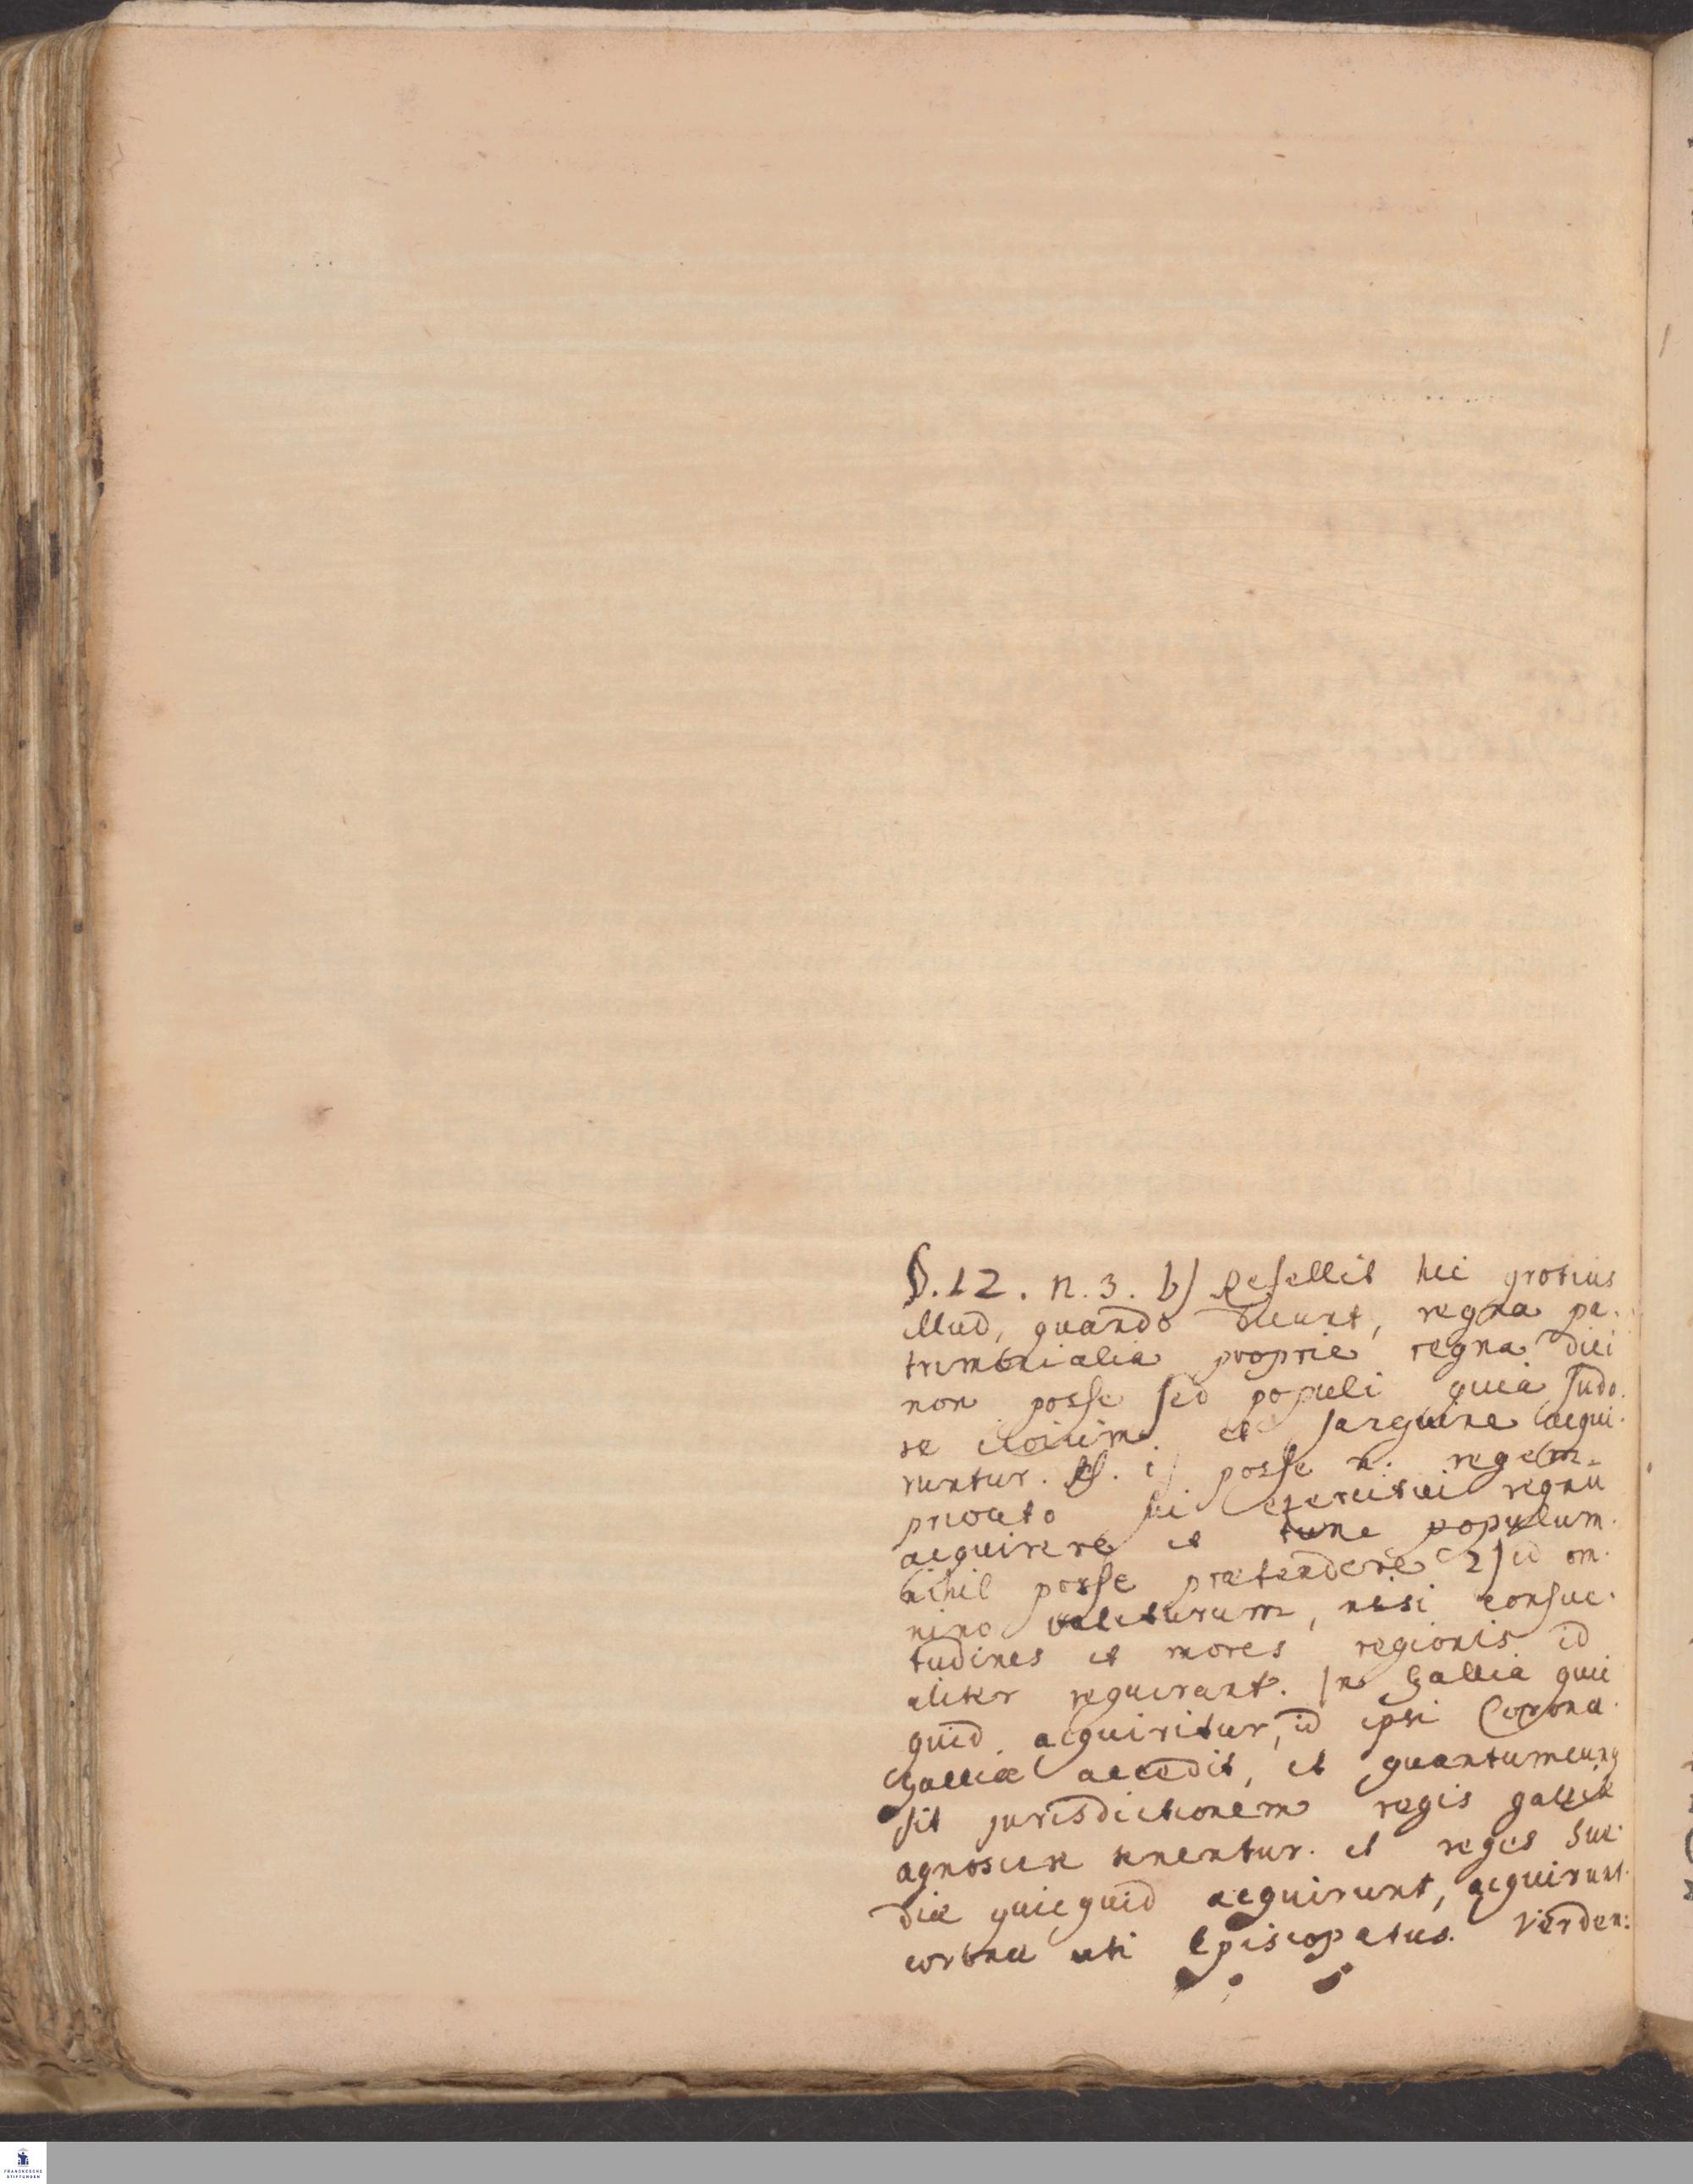 §. 12. n. 3. b) Refellit hic grotius
illud, quando dicunt, regna pa-
trimonialia proprie regna dici
non posse sed populi quia sudo-
re civium et sanguine acqui-
runtur. Rs. 1) posse n. regem
privato sui exercitui regnu
acquirere et tunc populum
nihil posse prætendere 2) id om-
nino valiturum, nisi consue-
tudines et mores regionis id
aliter requirant. In Gallia quic
quid acquiritur, id ipsi Corona
Galliæ accedit, et quantumcunq
sit jurisdictionem regis galliæ
agnoscere tenentur. et reges Sue-
diæ quicquid acquirunt, acquirunt
coronæ uti Episcopatus. Verden:
FRANCKESCHE
STIFTUNGEN